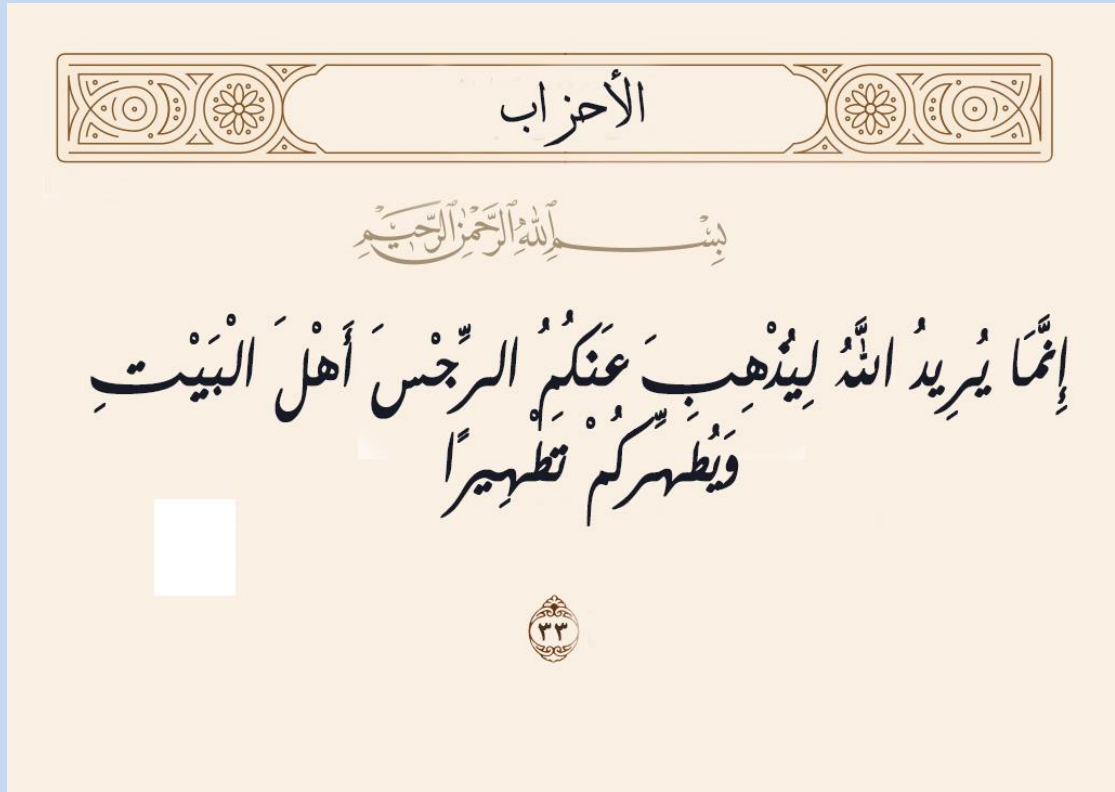 الأحزاب
بِسْمِ ٱللَّهِ ٱلرَّحْمَٰنِ ٱلرَّحِيمِ
إِنَّمَا يُرِيدُ اللَّهُ لِيُذْهِبَ عَنكُمُ الرِّجْسَ أَهْلَ الْبَيْتِ
وَيُطَهِّرَكُمْ تَطْهِيرًا
٣٣